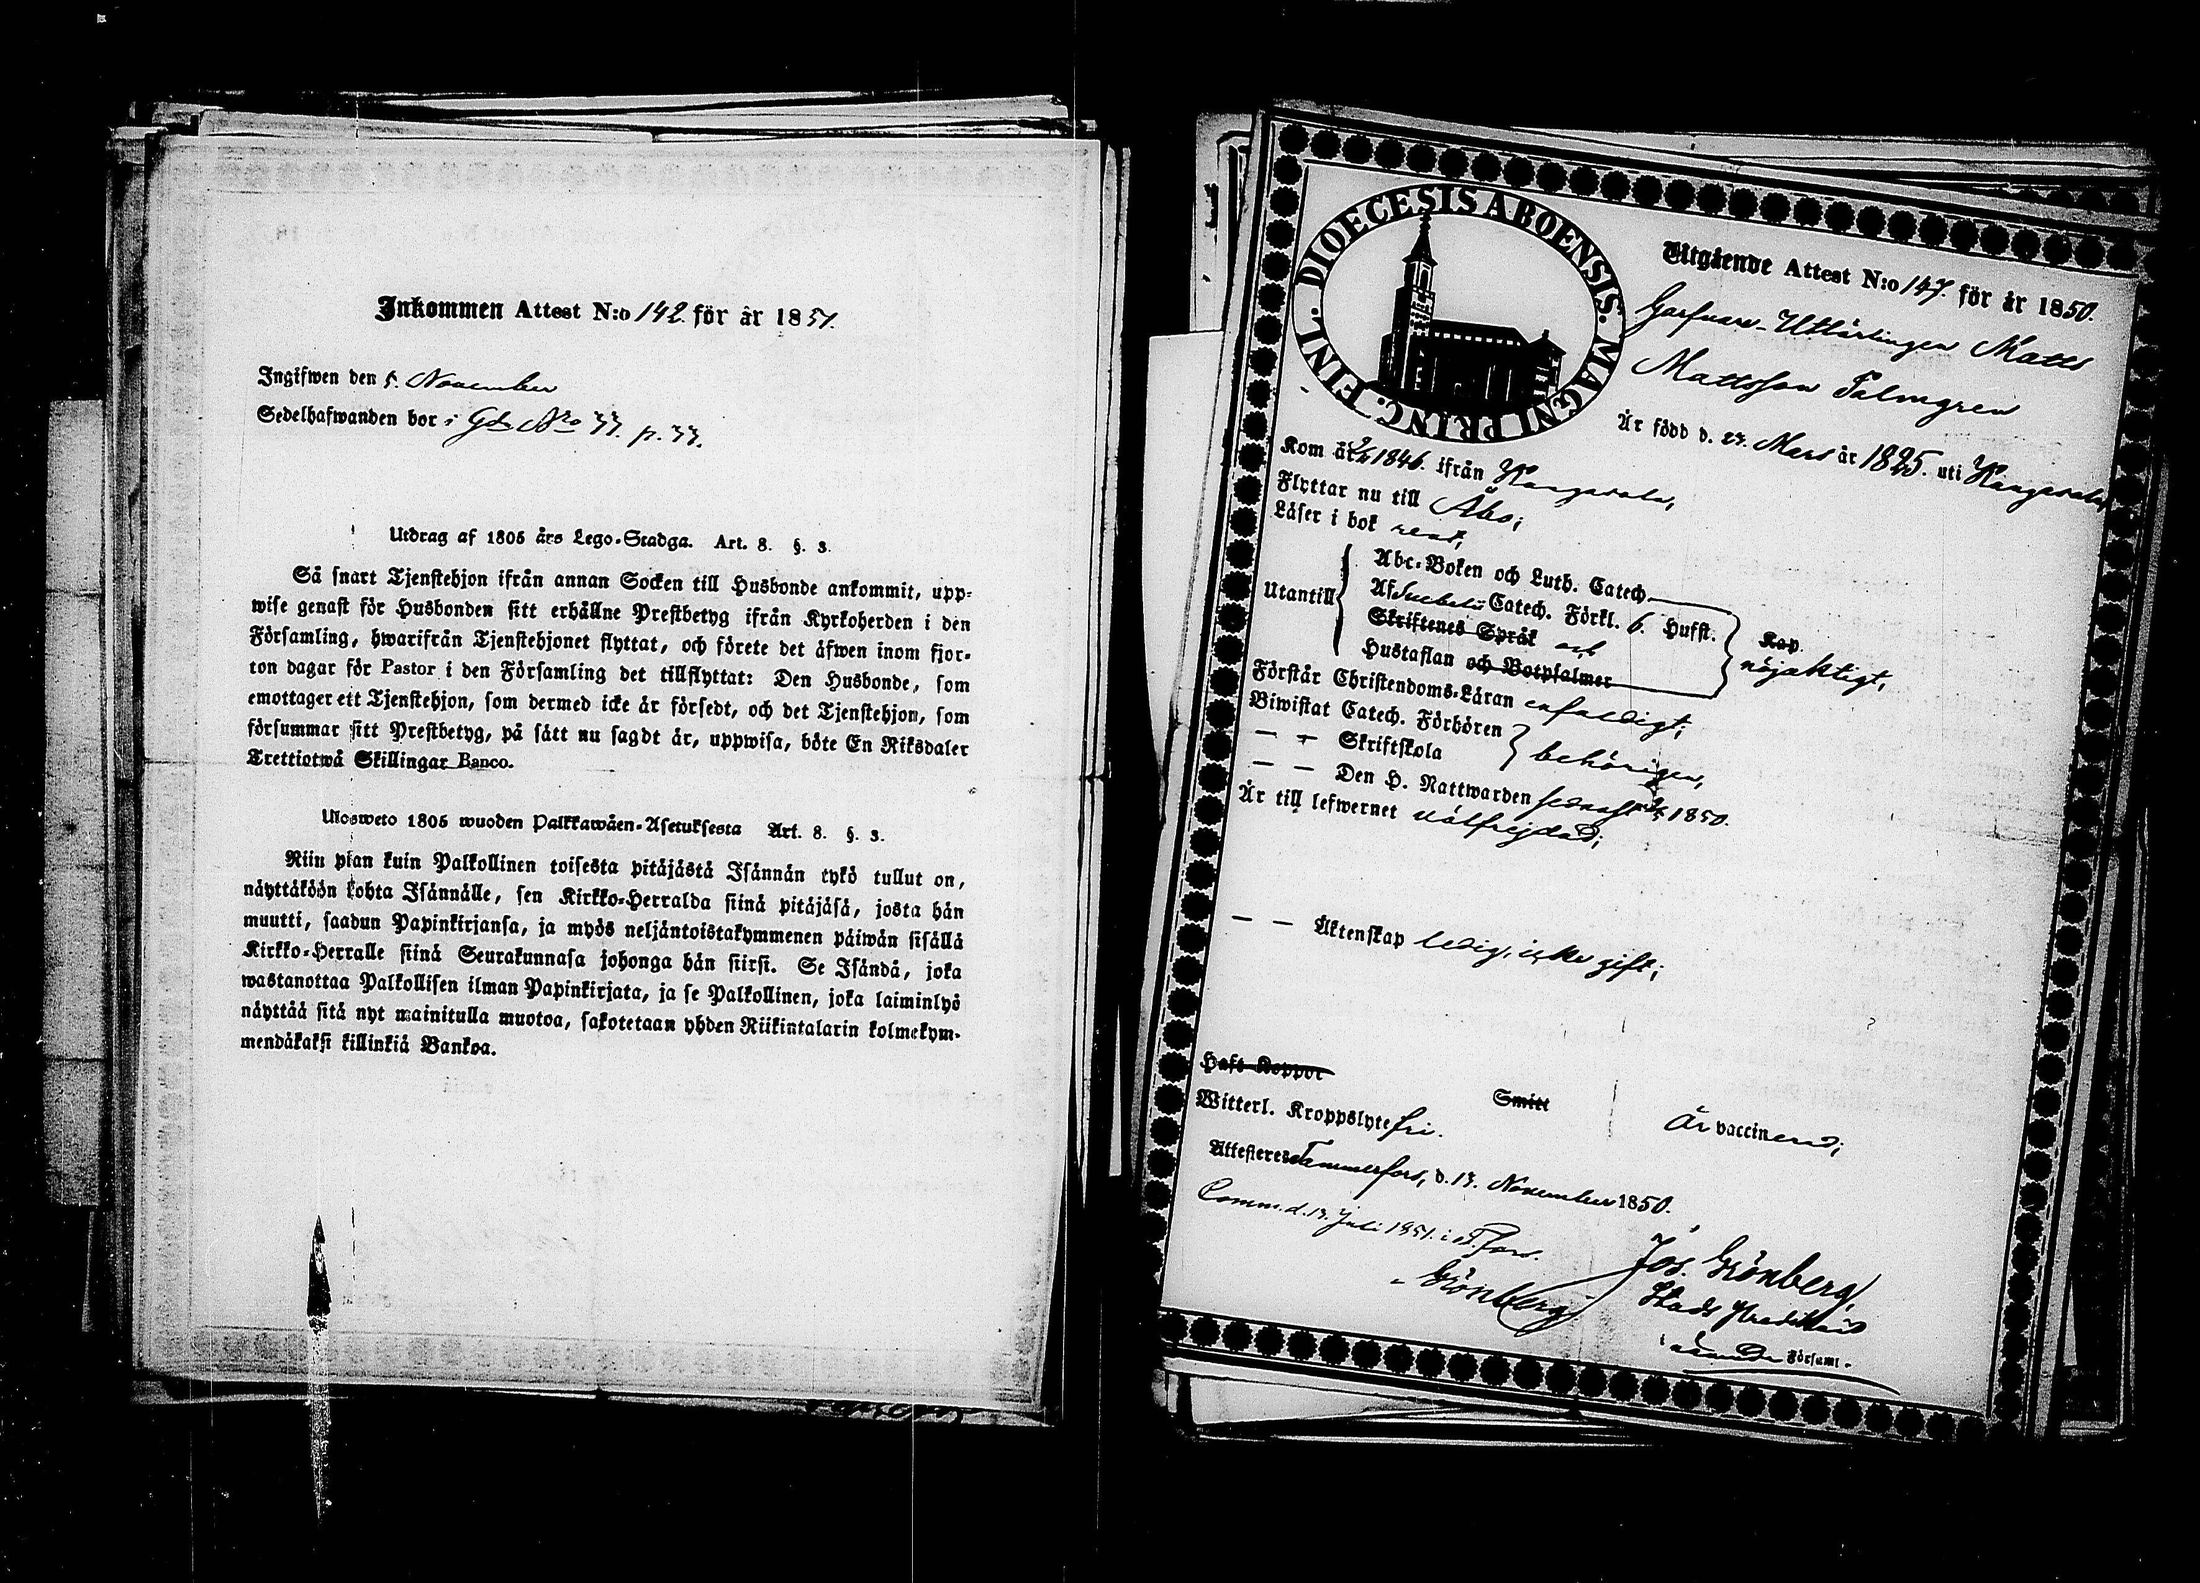 Inkommen Attest N:o 142. för år 1851.
Ingifwen den 5. November
Sedelhafwanden bor i Gd. Nro 77. p. 77.
Utdrag af 1805 års Lego-Stadga. Art. 8. §. 3.
Så snart Tjenstehjon ifrån annan Socken till Husbonde ankommit, upp-
wise genast för Husbonden sitt erhållne Prestbetyg ifrån Kyrkoherden i den
Församling, hwarifrån Tjenstehjonet flyttat, och förete det äfwen inom fjor-
ton dagar för Pastor i den Församling det tillflyttat: Den Husbonde, som
emottager ett Tjenstehjon, som dermed icke är försedt, och det Tjenstehjon, som
försummar sitt Prestbetyg, på sätt nu sagdt är, uppwisa, böte En Riksdaler
Trettiotwå Skillingar Banco.
Ulosweto 1805 wuoden Palkkawäen-Asetuksesta Art. 8. §. 3.
Niin pian kuin Palkollinen toisesta pitäjästä Isännän tykö tullut on,
näyttäköön kohta Isännälle, sen Kirkko-Herralda siinä pitäjäsä, josta hän
muutti, saadun Papinkirjansa, ja myös neljäntoistakymmenen päiwän sisällä
Kirkko-Herralle siinä Seurakunnasa johonga hän siirsi. Se Isändä, joka
wastanottaa Palkollisen ilman Papinkirjata, ja se Palkollinen, joka laiminlyö
näyttää sitä nyt mainitulla muotoa, sakotetaan yhden Riikintalarin kolmekym-
mendäkaksi killinkiä Bankoa.
DIOECESIS ABOENSIS. MAGNI PRINC. FINL.
Utgående Attest N:o 147. för år 1850.
Garfvare-Utlärlingen Matts
Mattsson Palmgren
Är född d. 23. Mars år 1825. uti Kangasala,
Kom år 1846. ifrån Kangasala,
Flyttar nu till Åbo;
Läser i bok rent;
Utantill
Abc-Boken och Luth. Catech.
Af Svebelii Catech. Förkl. 6. Hufst. Kap.
Skriftenes Språk och nöjaktigt,
Hustaflan och Botpsalmer
Förstår Christendoms-Läran enfaldigt;
Biwistat Catech. Förhören
— — Skriftskola behörigen,
— — Den H. Nattwarden sednast 1850.
Är till lefwernet välfrejdad;
— — Äktenskap ledig, icke gift;
Haft Koppor Smitt
Witterl. Kroppslyte fri. Är vaccinerad;
Attesteres Tammerfors, d. 13. November 1850.
Comm. d. 13. Juli 1851. i T:fors.
Grönberg
Jos. Grönberg,
Stads Predikant
i Församl.